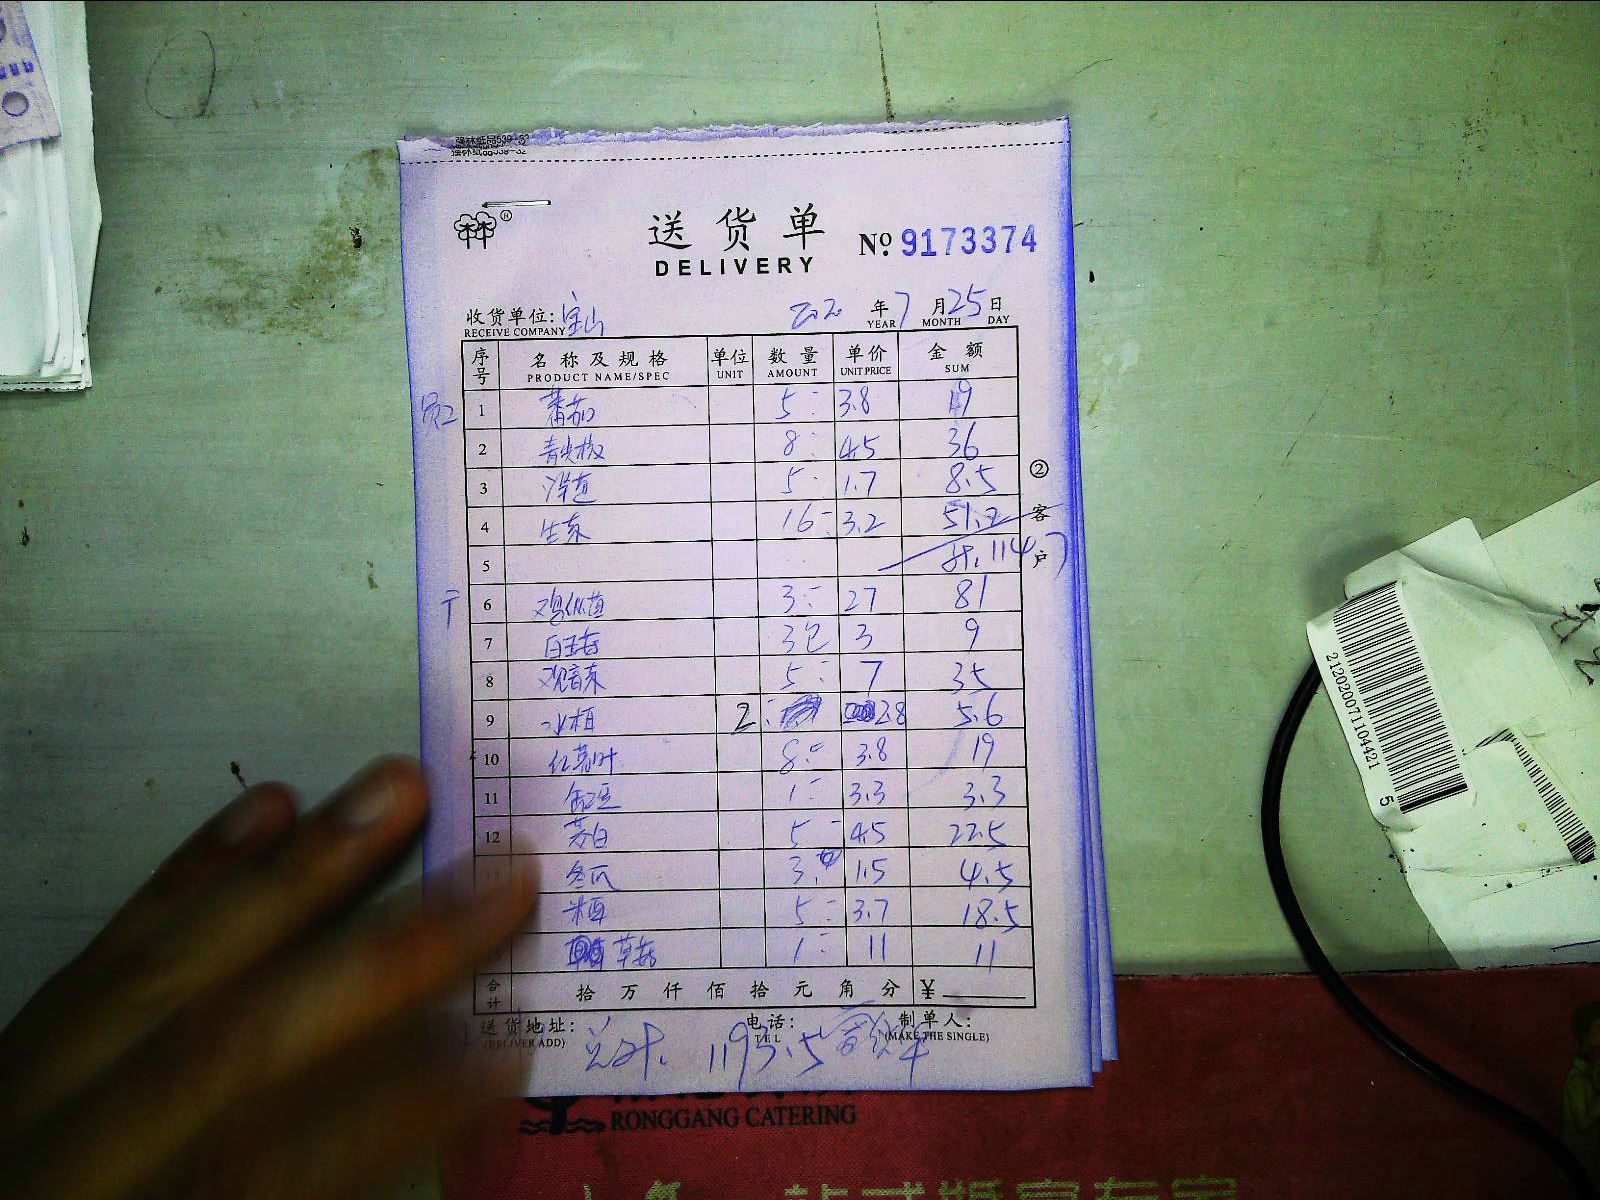 强林纸品539-32
林 ®
送货单
DELIVERY
№ 9173374
收货单位: 宝山 2020 年 7 月 25 日
RECEIVE COMPANY YEAR MONTH DAY
序号 名称及规格 单位 数量 单价 金额
PRODUCT NAME/SPEC UNIT AMOUNT UNIT PRICE SUM
1 蕃茄 5 3.8 19
2 青尖椒 8 4.5 36
3 洋芋 5 1.7 8.5
4 生菜 16 3.2 51.2
5 计. 114.7
6 鸡枞菌 3 27 81
7 白玉菇 3包 3 9
8 观音菜 5 7 35
9 2 2.8 5.6
10 红苕叶 8 3.8 19
11 3.3 3.3
12 茭白 5 4.5 22.5
冬瓜 3 1.5 4.5
5 3.7 18.5
草菇 1 11 11
② 客户
合计 拾 万 仟 佰 拾 元 角 分 ¥
送货地址: 电话: 制单人:
(DELIVER ADD) TEL (MAKE THE SINGLE)
总计. 1193.5
RONGGANG CATERING
2120200711044215